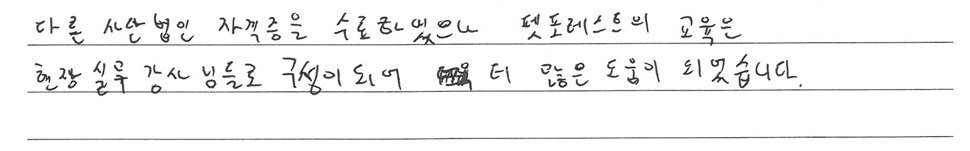 다른 사단법인 자격증을 수료하였으나 펫포레스트의 교육은
현장 실무 강사님들로 구성이 되어 더 많은 도움이 되었습니다.